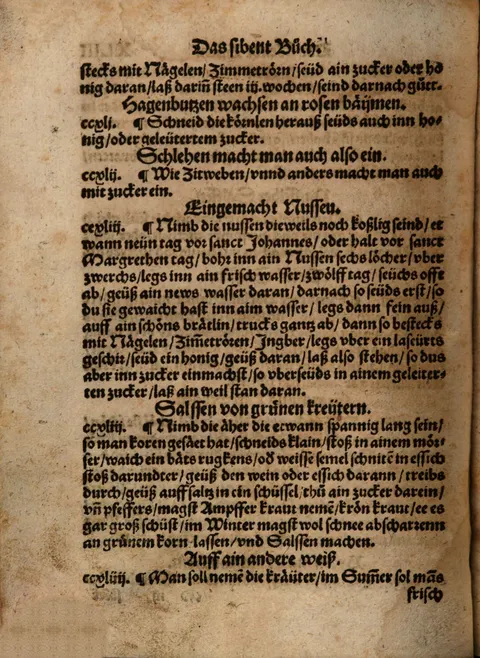 Das sibent Bůch.
stecks mit Nägelen/ Zimmetrörn/seüd ain zucker oder ho
nig daran/laß dariñ steen iij.wochen/seind darnach gůt.
Hagenbutzen wachsen an rosen bäumen.
ccxlj. ¶ Schneid die körnlen herauß seüds auch inn ho-
nig/oder geleütertem zucker.
Schlehen macht man auch also ein.
ccxlij. ¶ Wie Zitweben/vnnd anders macht man auch
mit zucker ein.
Eingemacht Nussen.
ccxliij. ¶ Nimb die nussen dieweils noch koßlig seind/et
wann neün tag vor sanct Johannes/oder halt vor sanct
Margrethen tag/bohr inn ain Nussen sechs löcher/vber
zwerchs/legs inn ain frisch wasser/zwölff tag/seüchs offt
ab/geüß ain news wasser daran/darnach so seüds erst/so
du sie gewaicht hast inn aim wasser/legs dann fein auß/
auff ain schöns brätlin/trucks gantz ab/dann so bestecks
mit Nägelen/Zim̃etrören/Ingber/legs vber ein lasürts
geschir/seüd ein honig/geüß daran/laß also stehen/so dus
aber inn zucker einmachst/so vberseüds in ainem geleiter-
ten zucker/laß ain weil stan daran.
Salssen von grünen kreütern.
ccxliiij. ¶ Nimb die åher die etwann spannig lang sein/
so man koren gesäet hat/schneids klain/stoß in ainem mör-
ser/waich ein båts rugkens/oď weisse semel schnitẽ in essich
stoß darundter/geüß den wein oder essich darann/treibs
durch/geüß auff saltz in ein schüssel/thů ain zucker darein/
vñ pfeffers/magst Ampffer kraut nemẽ/krön kraut/ee es
gar groß schüst/im Winter magst wol schnee abscharzenn
an grünem korn lassen/vnd Salssen machen.
Auff ain andere weiß.
¶ Man soll nemẽ die kräüter/im Sum̃er sol mãs
frisch